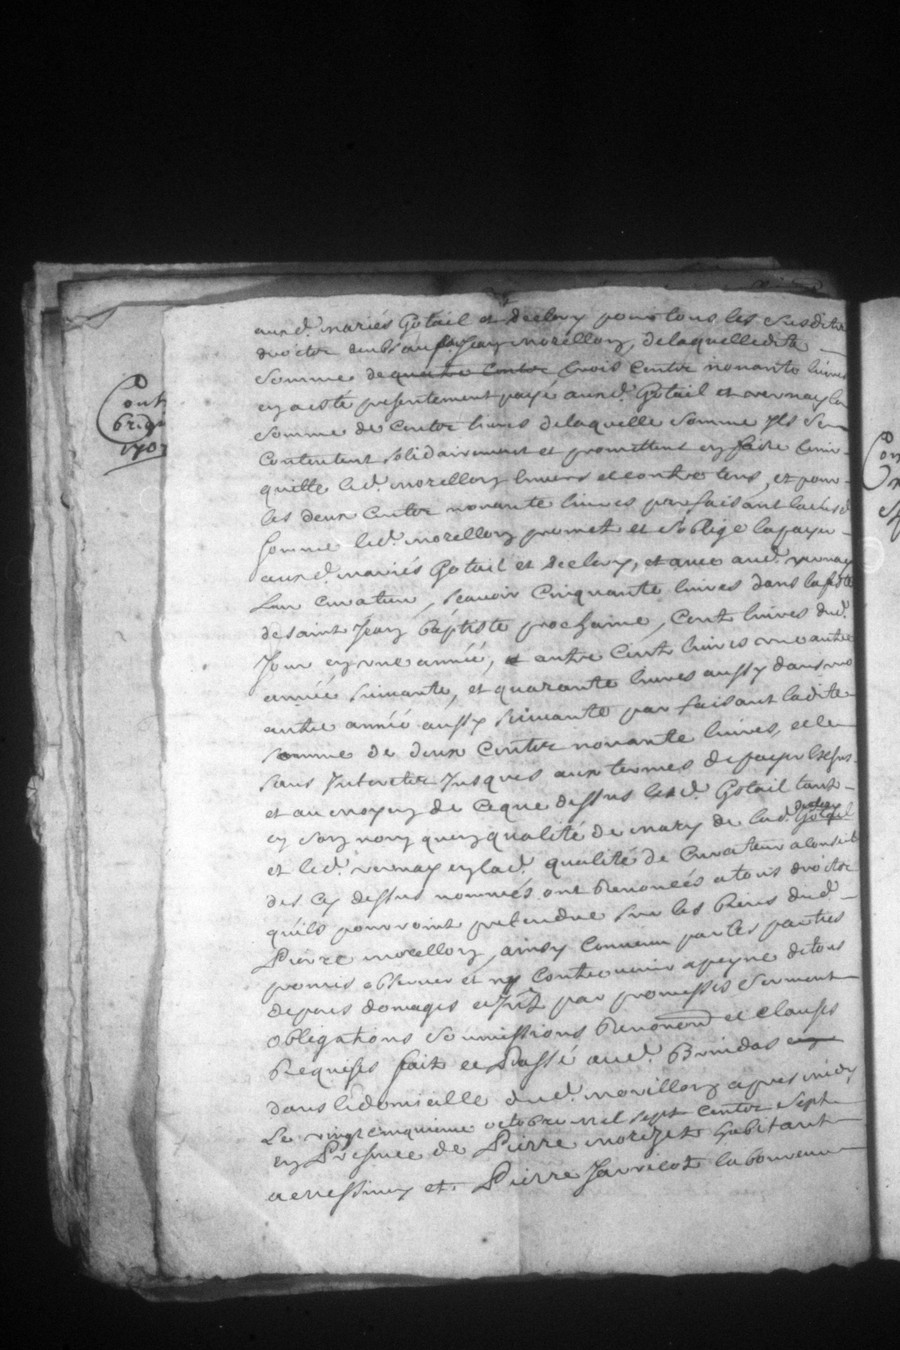 auxd. mariés Gotail et declery pour tous les susdits
droicts aud. Jean morellon, de laquelle dite
somme de quatre cents trois cents nonante livres
en a esté presentement payé auxd. Gotail et vernay la
somme de cents livres de laquelle somme Ils se
contentent solidairement et promettent en faire tenir
quitte led. morellon envers et contre tous, et pour
les deux cents nonante livres parfaisant lad.
somme led. morellon promet et s'oblige la payer
auxd. mariés Gotail et declery, et avec aud. vernay
leur curateur, scavoir cinquante livres dans la feste
de saint Jean baptiste prochaine, cent livres dud.
Jour en une année, et autre cent livres une autre
année suivante, et quarante livres aussy dans une
autre année aussy suivante parfaisant ladite
somme de deux cents nonante livres, et le
sans Interets Jusques aux termes de payer
et au moyen de ce que dessus led. Gotail tant
en son nom qu'en qualité de mary de lad. declery
et led. vernay en lad. qualité de curateur
des cy dessus nommés ont Renoncés a tous droicts
qu'ils pourroint pretendre sur les Biens dud.
Pierre morellon, ainsy convenu par les parties
promis observer et ny contrevenir a peyne de tous
depens domages et par promesses serment
obligations soumissions Renon et clauses
Requises fait et Passé aud. Brindas
dans le domicille dud. morillon apres midy
Le vingt cinquieme octobre mil sept cents sept
en Presence de Pierre morizet habitant
a et Pierre Jarricot laboureur